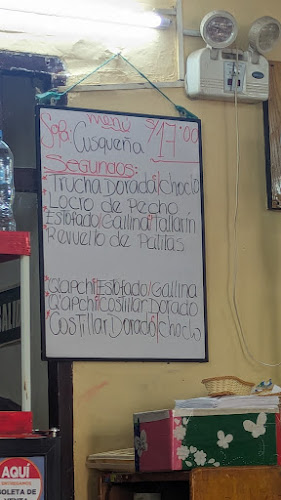 menú S/17:00
Sopa: Cusqueña
Segundos:
Trucha Dorada/choclo
Locro de Pecho
Estofado/Gallina/Tallarin
Revuelto de Patitas
Estofado/Gallina
Costillar Dorado
Costillar Dorado/choclo
AQUÍ
BOLETA DE
VENTA